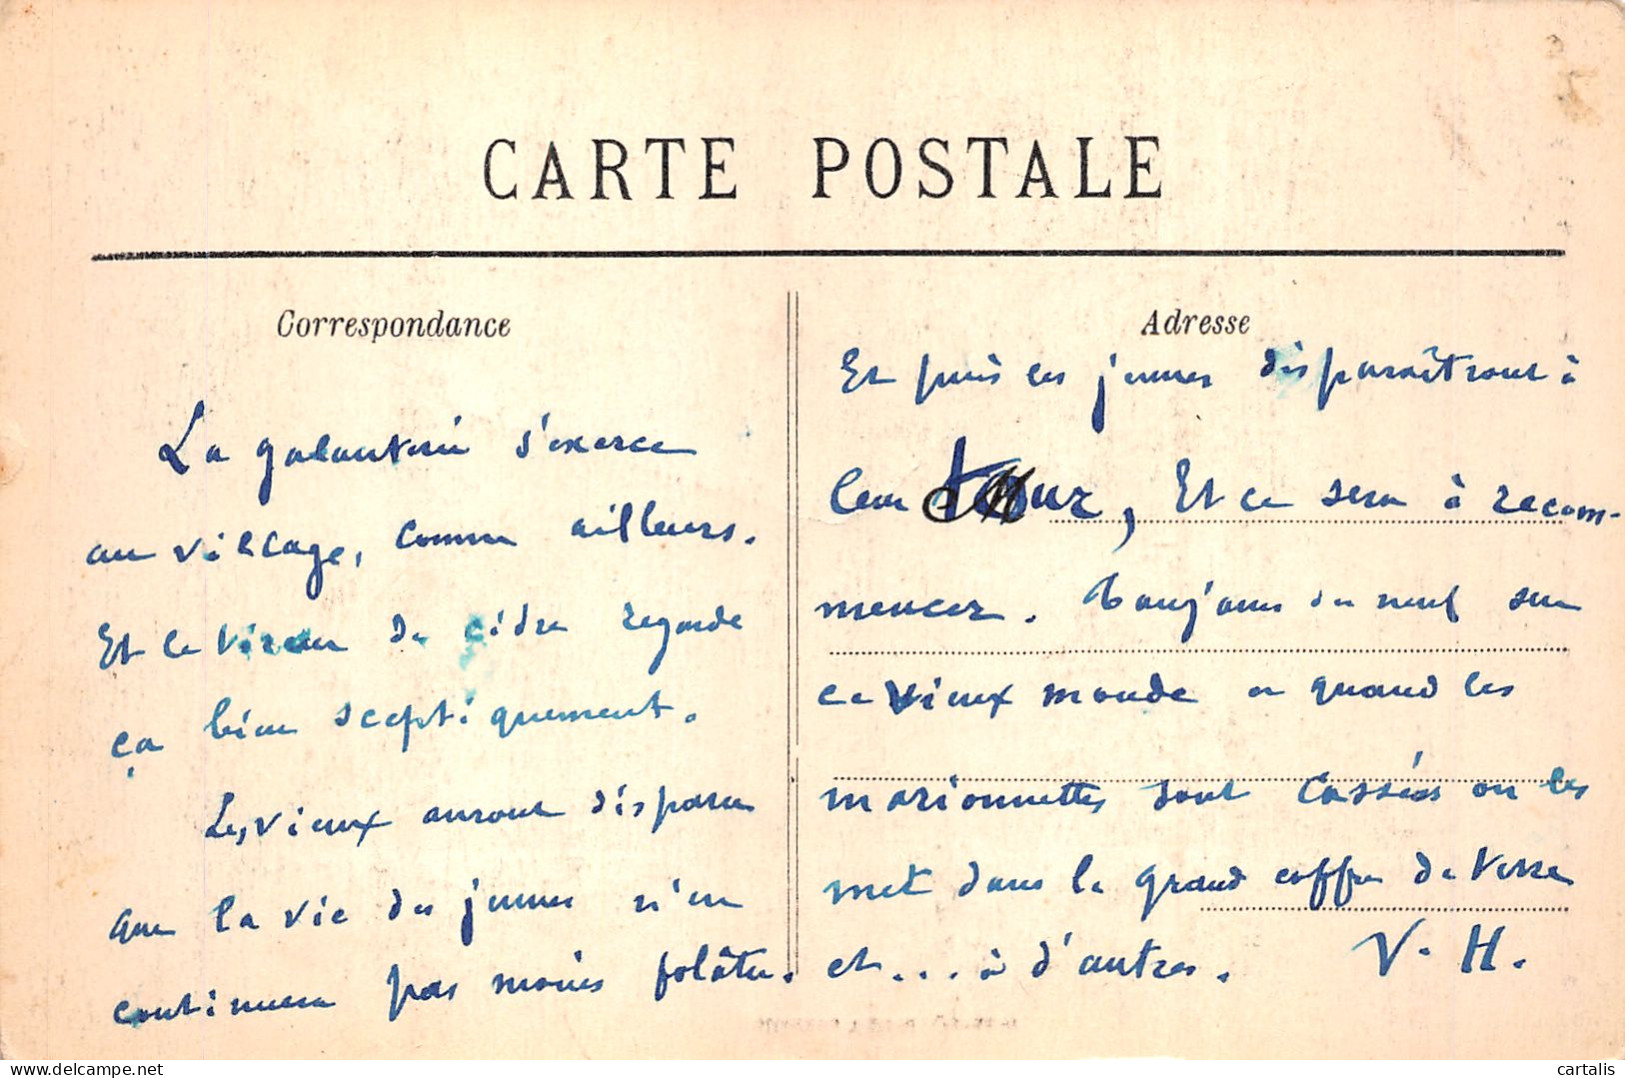 CARTE POSTALE
Correspondance
La galanterie s'exerce
au village, comme ailleurs.
Et le vireur de cidre regarde
ça bien sceptiquement.
Les vieux auront disparu
que la vie des jeunes n'en
continuera pas moins folâtre.
Adresse
Et puis les jeunes disparaîtront à
leur tour, Et ce sera à recom-
mencer. Toujours du neuf sur
ce vieux monde où quand les
marionnettes sont cassées on les
met dans le grand coffre de
et... à d'autres. V. H.
cartalis